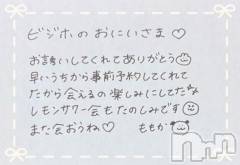 ビジホのおにいさま♡
お誘いしてくれてありがとう
早いうちから事前予約してくれて
たから会えるの楽しみにしてたな
レモンサワー会もたのしみです
また会おうね♡ ももか